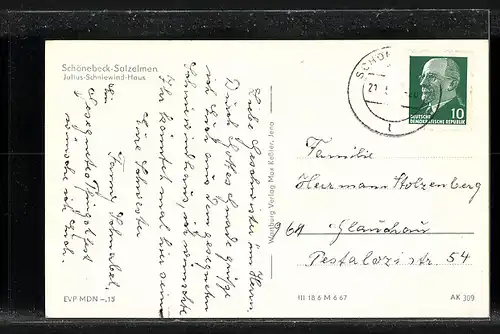 Schönebeck-Salzelmen
Julius-Schniewind-Haus
Liebe Geschwister im Herrn.
Durch Gottes Gnade grüße
ich Euch aus dem gesegneten
Schniewindhaus, ich wünschte
Ihr könntet mal hier sein
Eine Schwester
Ein
gesegnetes Pfingstfest
wünsche ich Euch.
EVP MDN -,15
Wartburg Verlag Max Keßler, Jena
III 18 6 M 6 67
AK 309
SCHÖN
10
DEUTSCHE
DEMOKRATISCHE REPUBLIK
Familie
Herrmann Stolzenberg
961 Glauchau
Pestalozistr 54